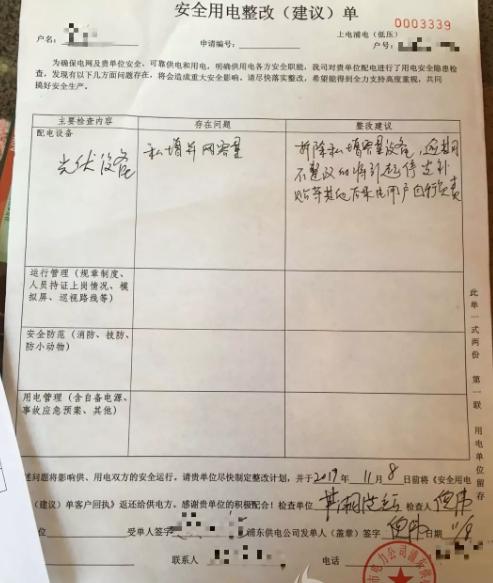 安全用电整改（建议）单
0003339
上电浦电（低压）
户名：
申请编号：
户号：
为确保电网及贵单位安全、可靠供电和用电，明确供用电各方安全职能，我司对贵单位配电进行了用电安全隐患检
查，发现有以下几方面问题存在，将会造成重大安全影响。请尽快落实整改，希望能得到全力支持高度重视，共同
搞好安全生产。
主要检查内容 存在问题 整改建议
配电设备
光伏设备
私增并网容量
拆除私增容量设备，逾期
不整改的将引起停发补
贴等其他后果由用户自行负责
运行管理（规章制度、
人员持证上岗情况、模
拟屏、巡视路线等）
安全防范（消防、技防、
防小动物）
用电管理（含自备电源、
事故应急预案、其他）
此单一式两份 第一联 用电单位留存
述问题将影响供、用电双方的安全运行，请贵单位尽快制定整改计划，并于2017年11月8日前将《安全用电
（建议）单客户回执》返还给供电方。感谢贵单位的积极配合！检查单位 检查人
单位 受单人签字 浦东供电公司发单人（盖章）签字 日期 11/8
联系人 电话
市电力公司浦东供